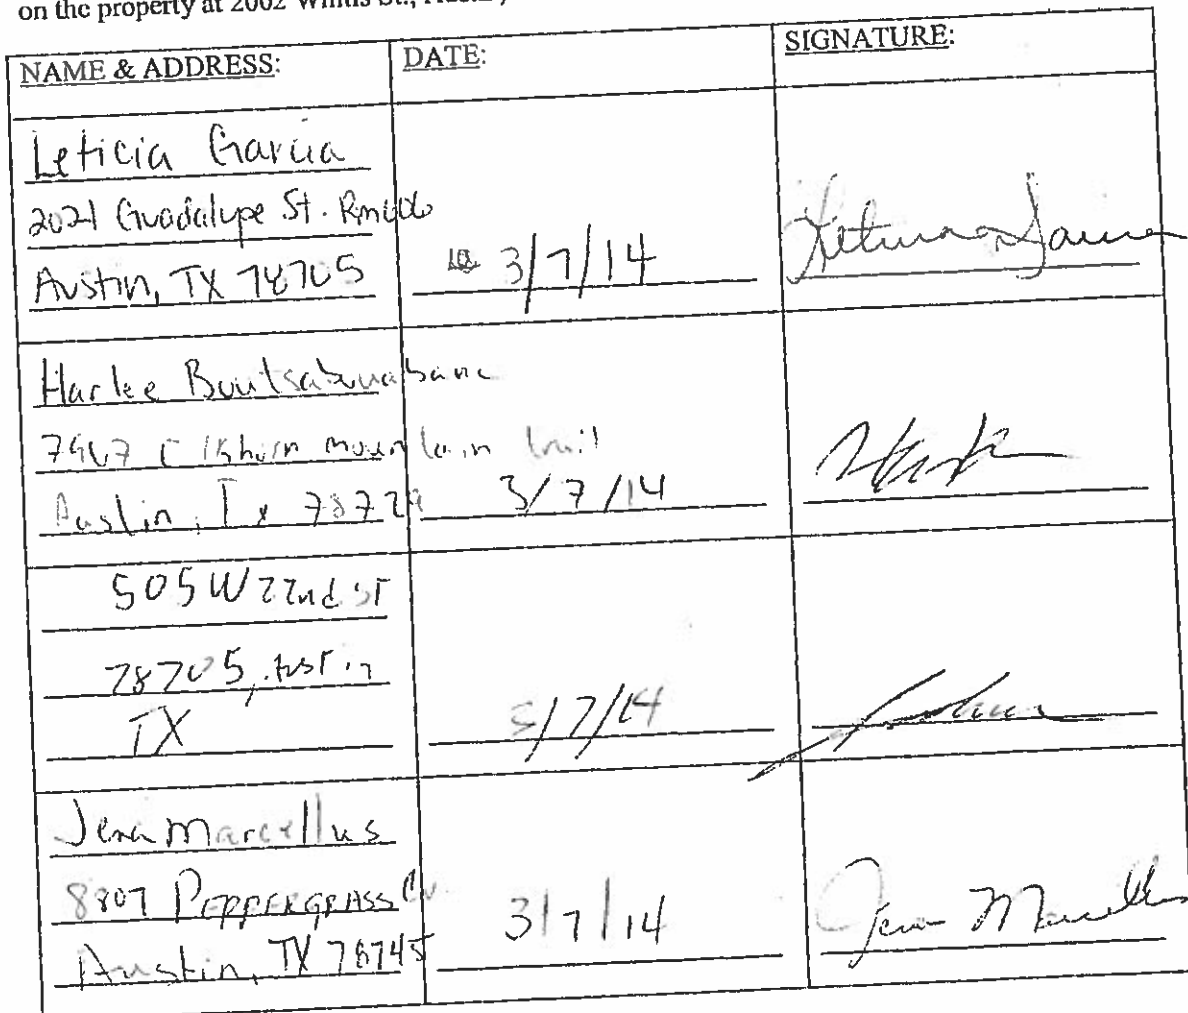 on the property at 2002 Whitis St.,
NAME & ADDRESS: DATE: SIGNATURE:
Leticia Garcia
2021 Guadalupe St. Rm
Austin, TX 78705 3/7/14
Harlee
mountain trail
Austin, Tx 78729 3/7/14
505 W 22nd ST
78705, Austin
TX /7/14
Jena Marcellus
8807 PEPPERGRASS Cv.
Austin, TX 78745 3/7/14 Jena Marcellus